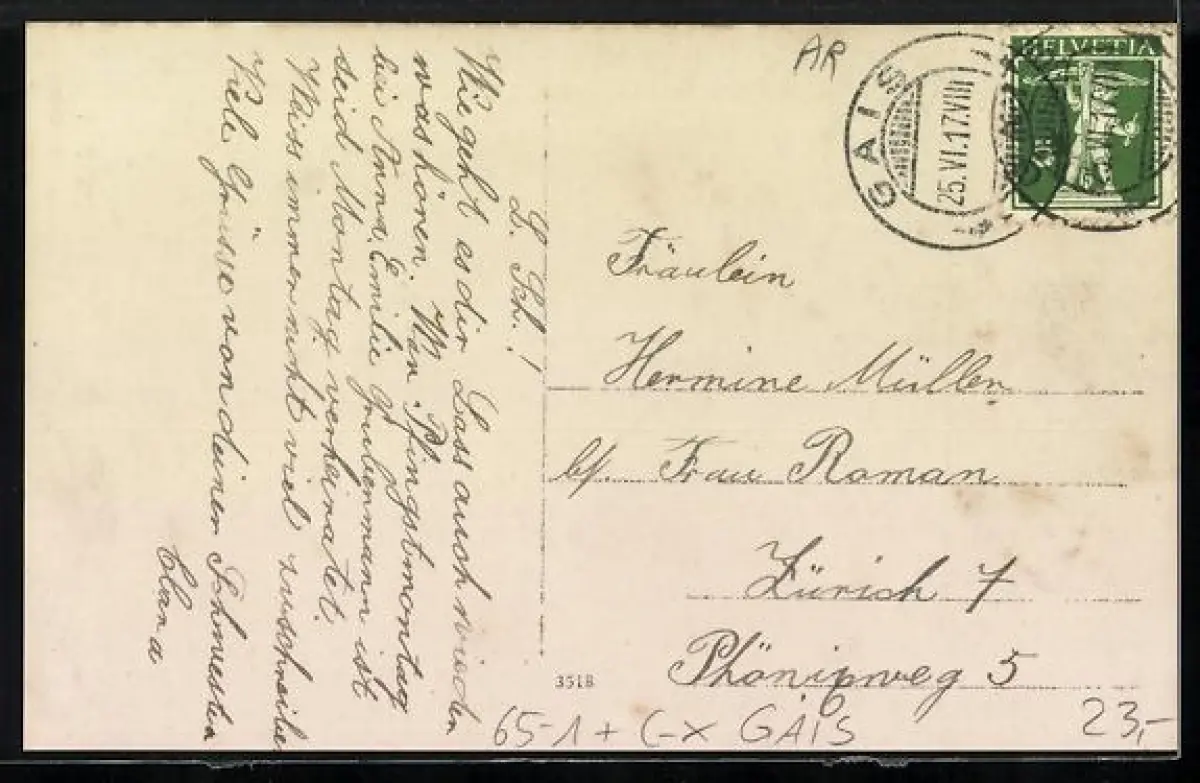 L. Sch.!
Wie geht es dir Lass auch wieder
was hören. War Pfingstmontag
bei Anna. Emilie Grubenmann ist
seid Montag verheiratet.
Weiss immer nicht viel zuschreiben
Viele Grüsse von deiner Schwester
Clara
AR
GAIS
25.VI.17.VIII
HELVETIA
Fräulein
Hermine Müller
b/. Frau Roman
Zürich 7
Phönixweg 5
3518
65-1 + C-X GAIS
23,-